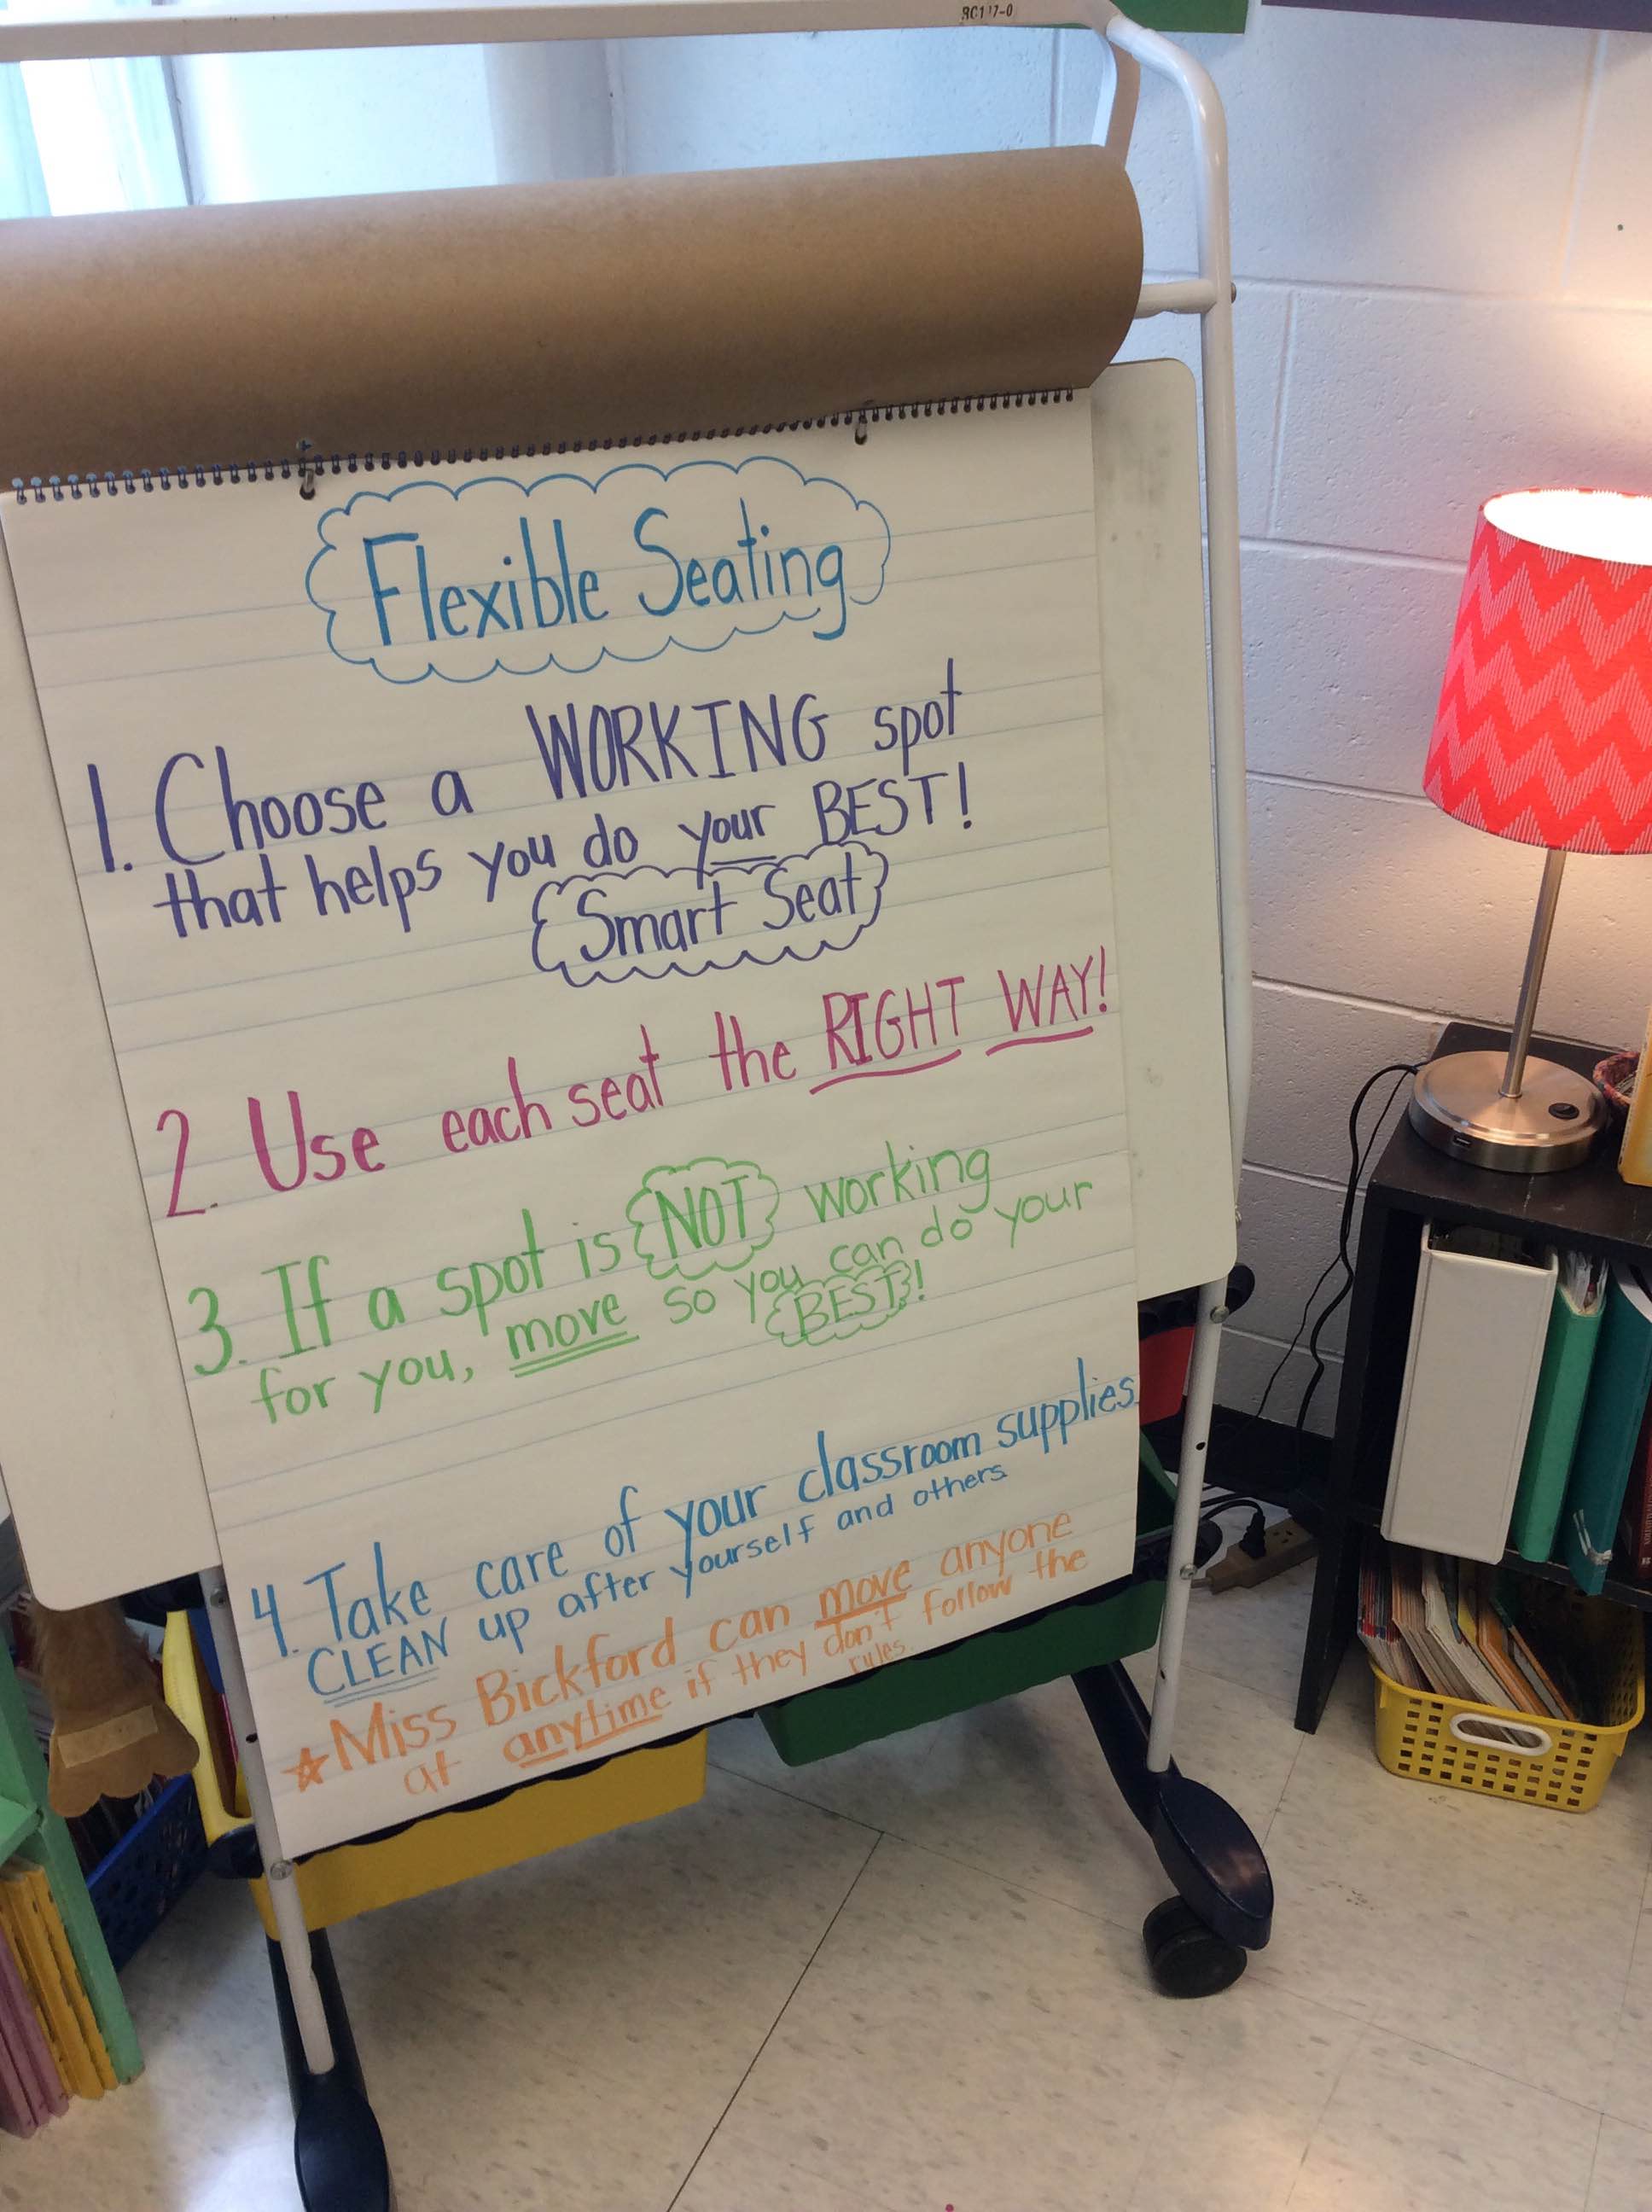 RC117-0
Flexible Seating
1. Choose a WORKING spot
that helps you do your BEST!
Smart Seat
2. Use each seat the RIGHT WAY!
3. If a spot is NOT working
for you, move so you can do your
BEST!
4. Take care of your classroom supplies.
CLEAN up after yourself and others.
☆ Miss Bickford can move anyone
at anytime if they don't follow the
rules.